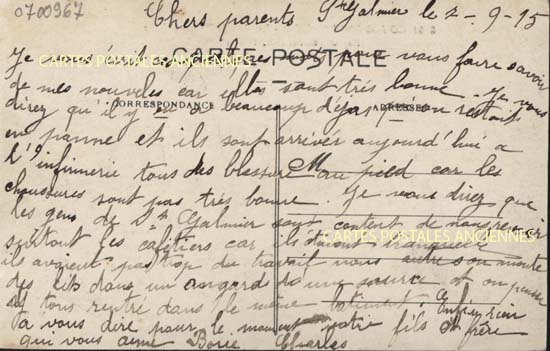 0700967
St Galmier le 2-9-15
Chers parents
Je vous écris ces pour vous faire savoir
CARTE POSTALE
CARTES POSTALES ANCIENNES
de mes nouvelles car elles sont très bonne. Je vous
direz qu'il y en a beaucoup déjas qu'on restait
CORRESPONDANCE
ADRESSE
en panne et ils sont arrivés aujourd'hui a
l'infirmerie tous des blessure au pied car les
chaussures sont pas très bonne. Je vous direz que
les gens de St Galmier sont content de nous
CARTES POSTALES ANCIENNES
surtout les cafetiers car ils
ils avaient pas trop de travail nous on monte
des lits dans un angard
tous rentré dans le même batiment. Enfin rien
a vous dire pour le moment votre fils et frère
qui vous aime Charles